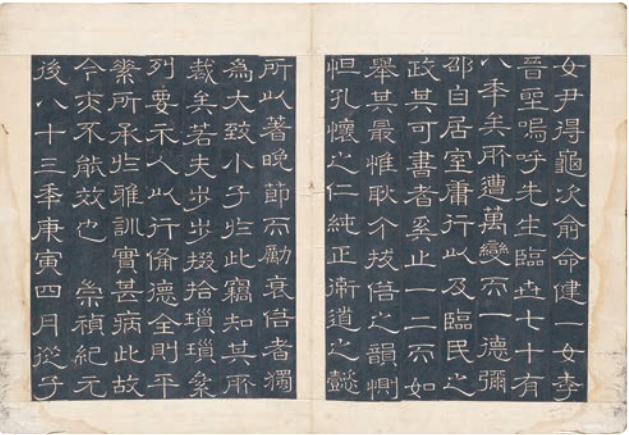 女尹得龜次俞命健一女李
晉聖嗚呼先生臨世七十有
八年矣所遭萬變而一德彌
邵自居室庸行以及臨民之
政其可書者奚止一二而如
舉其最惟耿介拔俗之韻惻
怛孔懷之仁純正衛道之懿
所以著晚節而勵衰俗者獨
為大致小子於此竊知其所
裁矣若夫步步掇拾瑣瑣纍
列要示人以行備德全則平
素所承於雅訓實甚病此故
今亦不能效也 崇禎紀元
後八十三年庚寅四月從子